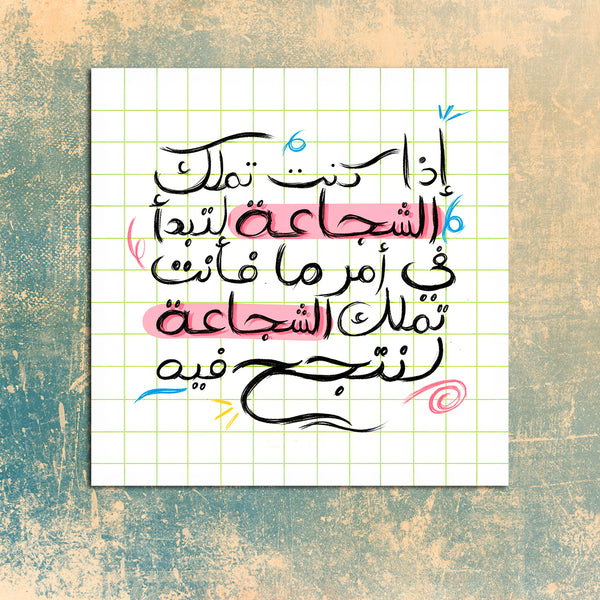 إذا كنت تملك
الشجاعة لتبدأ
في أمر ما فأنت
تملك الشجاعة
لتنجح فيه